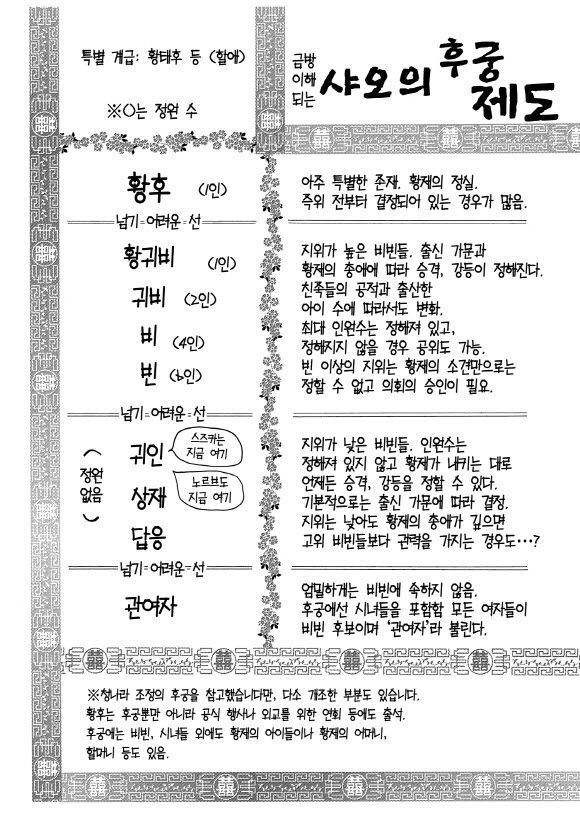 특별 계급: 황태후 등 (할애)
※○는 정원 수
금방
이해
되는
샤오의 후궁
제도
황후 (1인)
아주 특별한 존재. 황제의 정실.
즉위 전부터 결정되어 있는 경우가 많음.
넘기=어려운=선
황귀비 (1인)
귀비 (2인)
비 (4인)
빈 (6인)
지위가 높은 비빈들. 출신 가문과
황제의 총애에 따라 승격, 강등이 정해진다.
친족들의 공적과 출산한
아이 수에 따라서도 변화.
최대 인원수는 정해져 있고,
정해지지 않을 경우 공위도 가능.
빈 이상의 지위는 황제의 소견만으로는
정할 수 없고 의회의 승인이 필요.
넘기=어려운=선
(정원
없음)
귀인
스즈카는
지금 여기
상재
노르브도
지금 여기
답응
지위가 낮은 비빈들. 인원수는
정해져 있지 않고 황제가 내키는 대로
언제든 승격, 강등을 정할 수 있다.
기본적으로는 출신 가문에 따라 결정.
지위는 낮아도 황제의 총애가 깊으면
고위 비빈들보다 권력을 가지는 경우도…?
넘기=어려운=선
관여자
엄밀하게는 비빈에 속하지 않음.
후궁에선 시녀들을 포함함 모든 여자들이
비빈 후보이며 '관여자'라 불린다.
※청나라 조정의 후궁을 참고했습니다만, 다소 개조한 부분도 있습니다.
황후는 후궁뿐만 아니라 공식 행사나 외교를 위한 연회 등에도 출석.
후궁에는 비빈, 시녀들 외에도 황제의 아이들이나 황제의 어머니,
할머니 등도 있음.